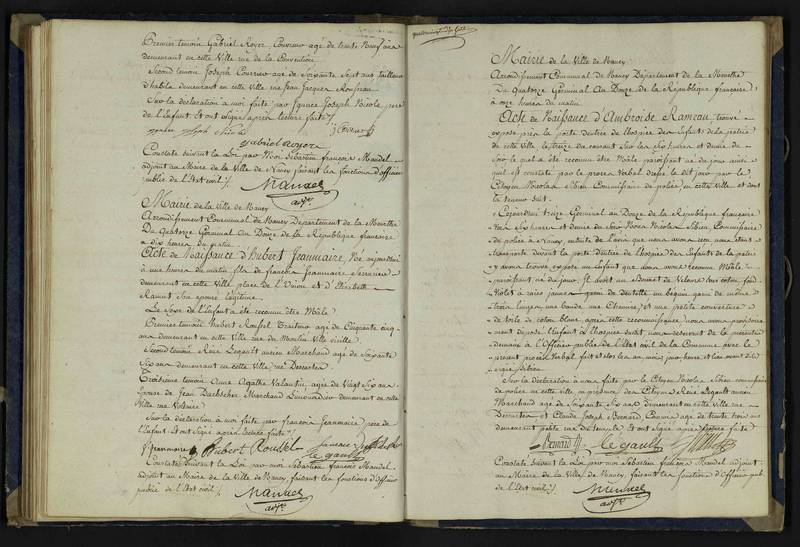 Premier temoin Gabriel Royer, Couvreur agé de trente Neuf ans
demeurant en cette Ville rue de la Convention.
Second temoin Joseph age de Soixante Sept ans tailleur
d'habits demeurant en cette Ville rue Jean Jacques Rousseau.
Sur la declaration a moi faite par Ignace Joseph Nicole pere
de l'Enfant et ont signe après lecture faite
joseph Nicole
gabriel royer
Constaté Suivant la Loi par Moi Sebastien françois Mandel
adjoint au Maire de la Ville de Nancy faisant les fonctions d'officier
public de l'Etat civil
Mandel
adjt
Mairie de la Ville de Nancy
Arrondissement Communal de Nancy Departement de la Meurthe
Du Quatorze Germinal An Douze de la République francaise
a dix heures du matin
Acte de Naissance d'Hubert Jeanmaire, Né aujourdhui
a une heure du matin fils de francois Jeanmaire Serrurier
demeurant en cette Ville place de l'Union et d'Elisabeth
Ramut Son epouse legitime.
Le Sexe de l'Enfant a été reconnu être Mâle
Premier temoin Hubert Roussel Traiteur agé de Cinquante cinq
ans demeurant en cette Ville rue du Moulin Ville vieille
Second temoin René Legault ancien Marchand agé de Soixante
Six ans demeurant en cette Ville rue Descartes
Troisieme temoin Anne Agathe Valentin agée de Vingt Six ans
Epouse de Jean Marchand demeurant en cette
Ville rue Voltaire
Sur la declaration à moi faite par francois Jeanmaire pere de
l'Enfant et ont Signé après lecture faite
f jeanmaire hubert Roussel
le gault
Constaté Suivant la Loi par moi Sebastien francois Mandel
adjoint au Maire de la Ville de Nancy, faisant les fonctions d'officier
public de l'Etat civil
Mandel
adjt
Mairie de la Ville de Nancy
Arrondissement Communal de Nancy Departement de la Meurthe
Du Quatorze Germinal An Douze de la République francaise
a onze heures du matin
Acte de Naissance d'Ambroise Rameau, trouvé
exposé près la porte d'entrée de l'hospice des Enfants de la patrie
de cette Ville, le treize du courant Sur les Six heures et demie du
Soir lequel a été reconnu être Mâle paroissant né du jour ainsi
qu'il est constaté par le proces Verbal dressé le dit jour par le
Citoyen Nicolas Commissaire de police en cette Ville et dont
la teneur suit.
Cejourdhui treize Germinal an Douze de la République francaise
Vers Six heures et demie du Soir Nous Nicolas Commissaire
de police a Nancy
transporté devant la porte d'entrée de l'hospice des Enfants de la patrie
y avons trouvé exposé un Enfant que nous avons reconnu Mâle
paroissant né du jour. Il avoit un Bonnet de Velours
Violet à raies jaunes garni de dentelle un beguin garni de même
trois langes une bande une Chemise, et une petite couverture
de toile de coton bleue. après cette reconnoissance nous avons provisoirement
deposé l'Enfant à l'hospice
demain à l'officier public de l'Etat civil de la Commune avec le
present proces Verbal fait et clos les an, mois, jour, heure et lieu avant dit
signé
Sur la declaration à nous faite par le Citoyen Nicolas commissaire
de police en cette Ville, en presence de René Legault ancien
Marchand agé de Soixante Six ans demeurant en cette Ville rue
Descartes et Claude Joseph Bernard, agé de trente trois ans
demeurant petite rue du temple et ont Signé après lecture faite
Bernard le gault
Constaté Suivant la Loi par moi Sebastien françois Mandel adjoint
au Maire de la Ville de Nancy, faisant les fonctions d'officier public
de l'Etat civil
Mandel
adjt